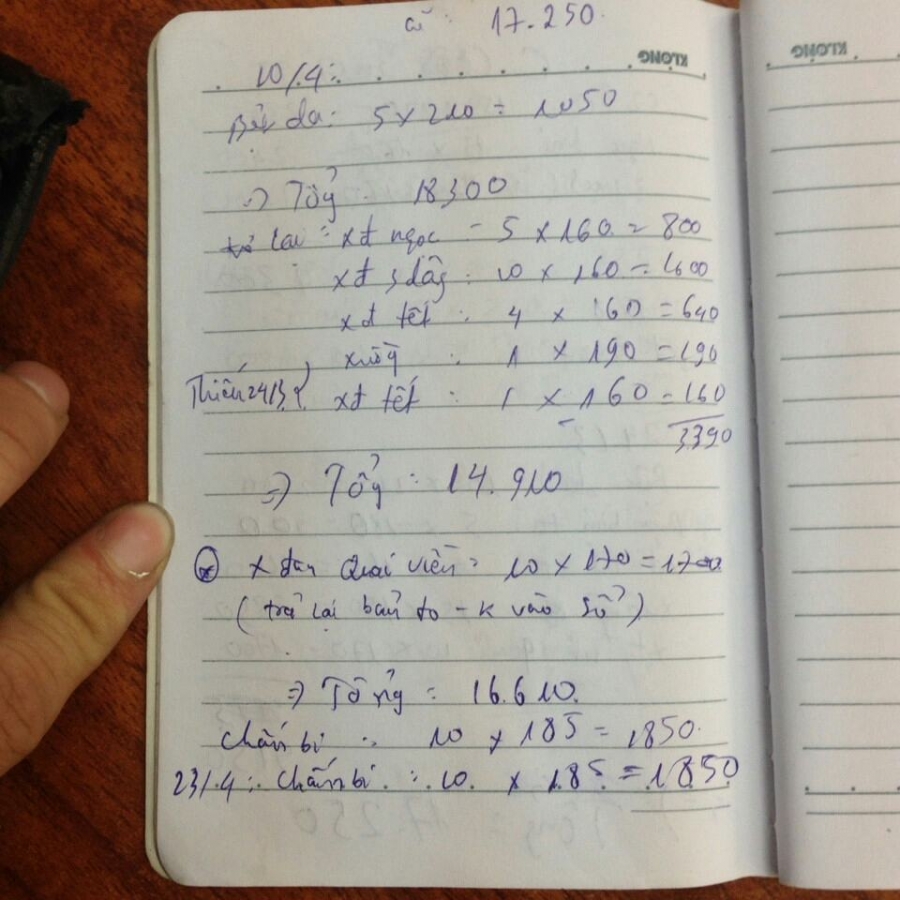 cũ : 17.250.
KLONG
KLONG
10/4:
da: 5 x 210 = 1050
=> Tổng : 18300
trả lại : xđ ngọc = 5 x 160 = 800
xđ : 10 x 160 = 1600
xđ tết : 4 x 160 = 640
xuồng : 1 x 190 = 190
Thiếu 24/3 xđ tết : 1 x 160 = 160
3390
=> Tổng : 14.910
x đan Quai viền : 10 x 170 = 1700
(trả lại - k vào sổ)
=> Tổng = 16.610.
Chấn bi : 10 x 185 = 1850.
23/4 : Chấn bi : 10 x 185 = 1850